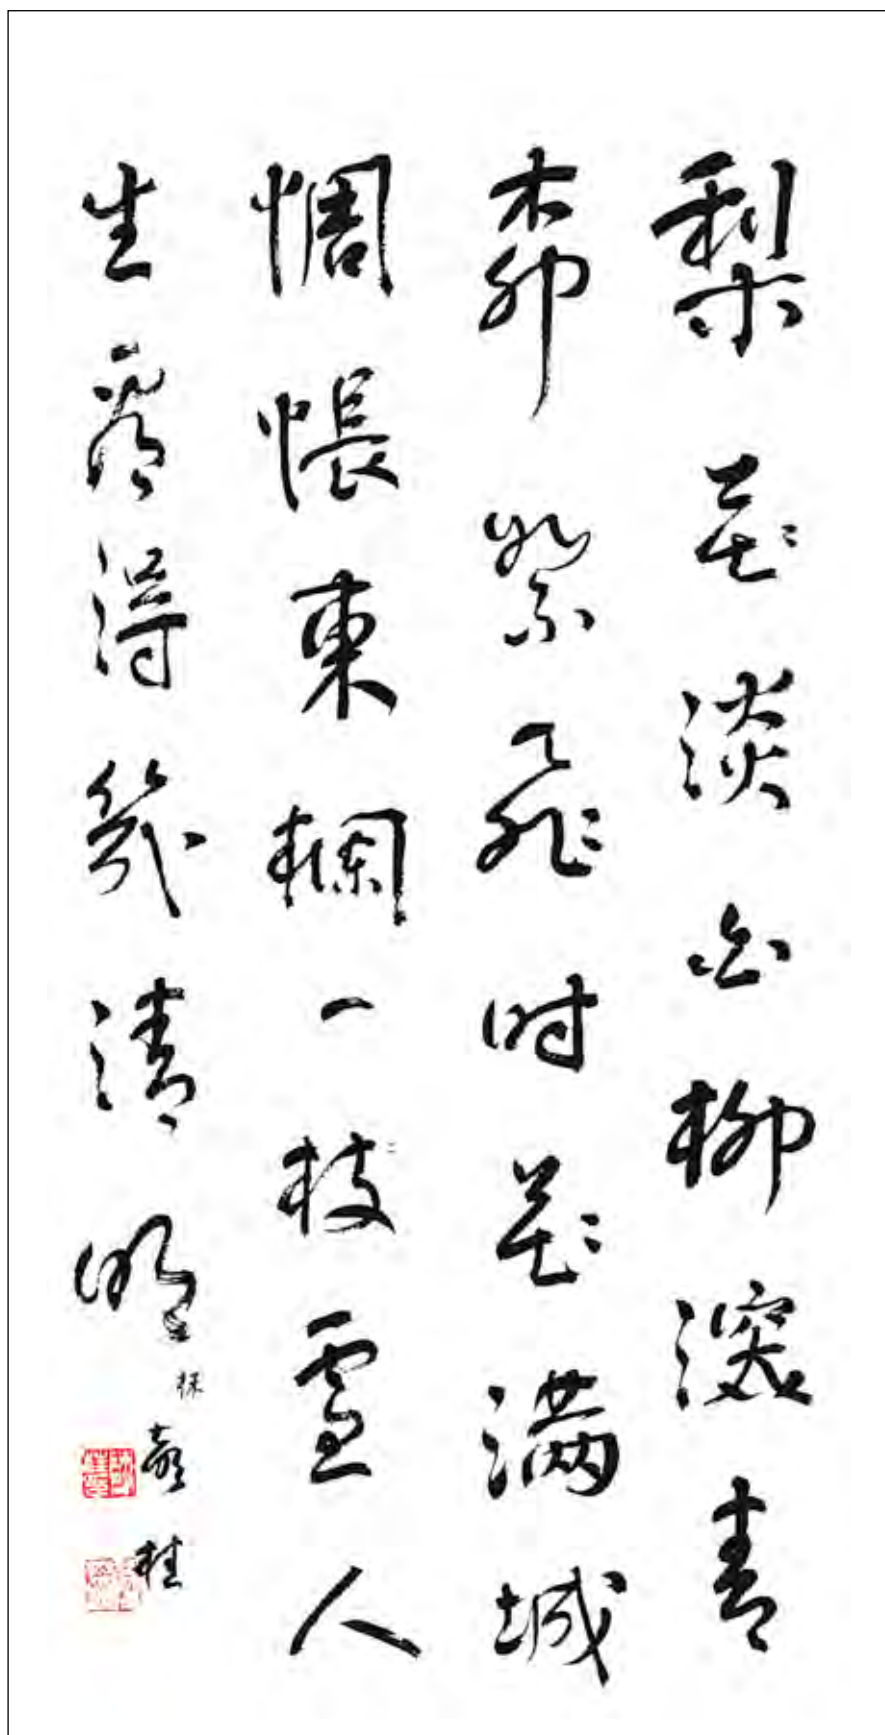 梨花淡白柳深青
桺絮飛时花滿城
惆悵東欄一枝雪人
生看得幾清明
桂